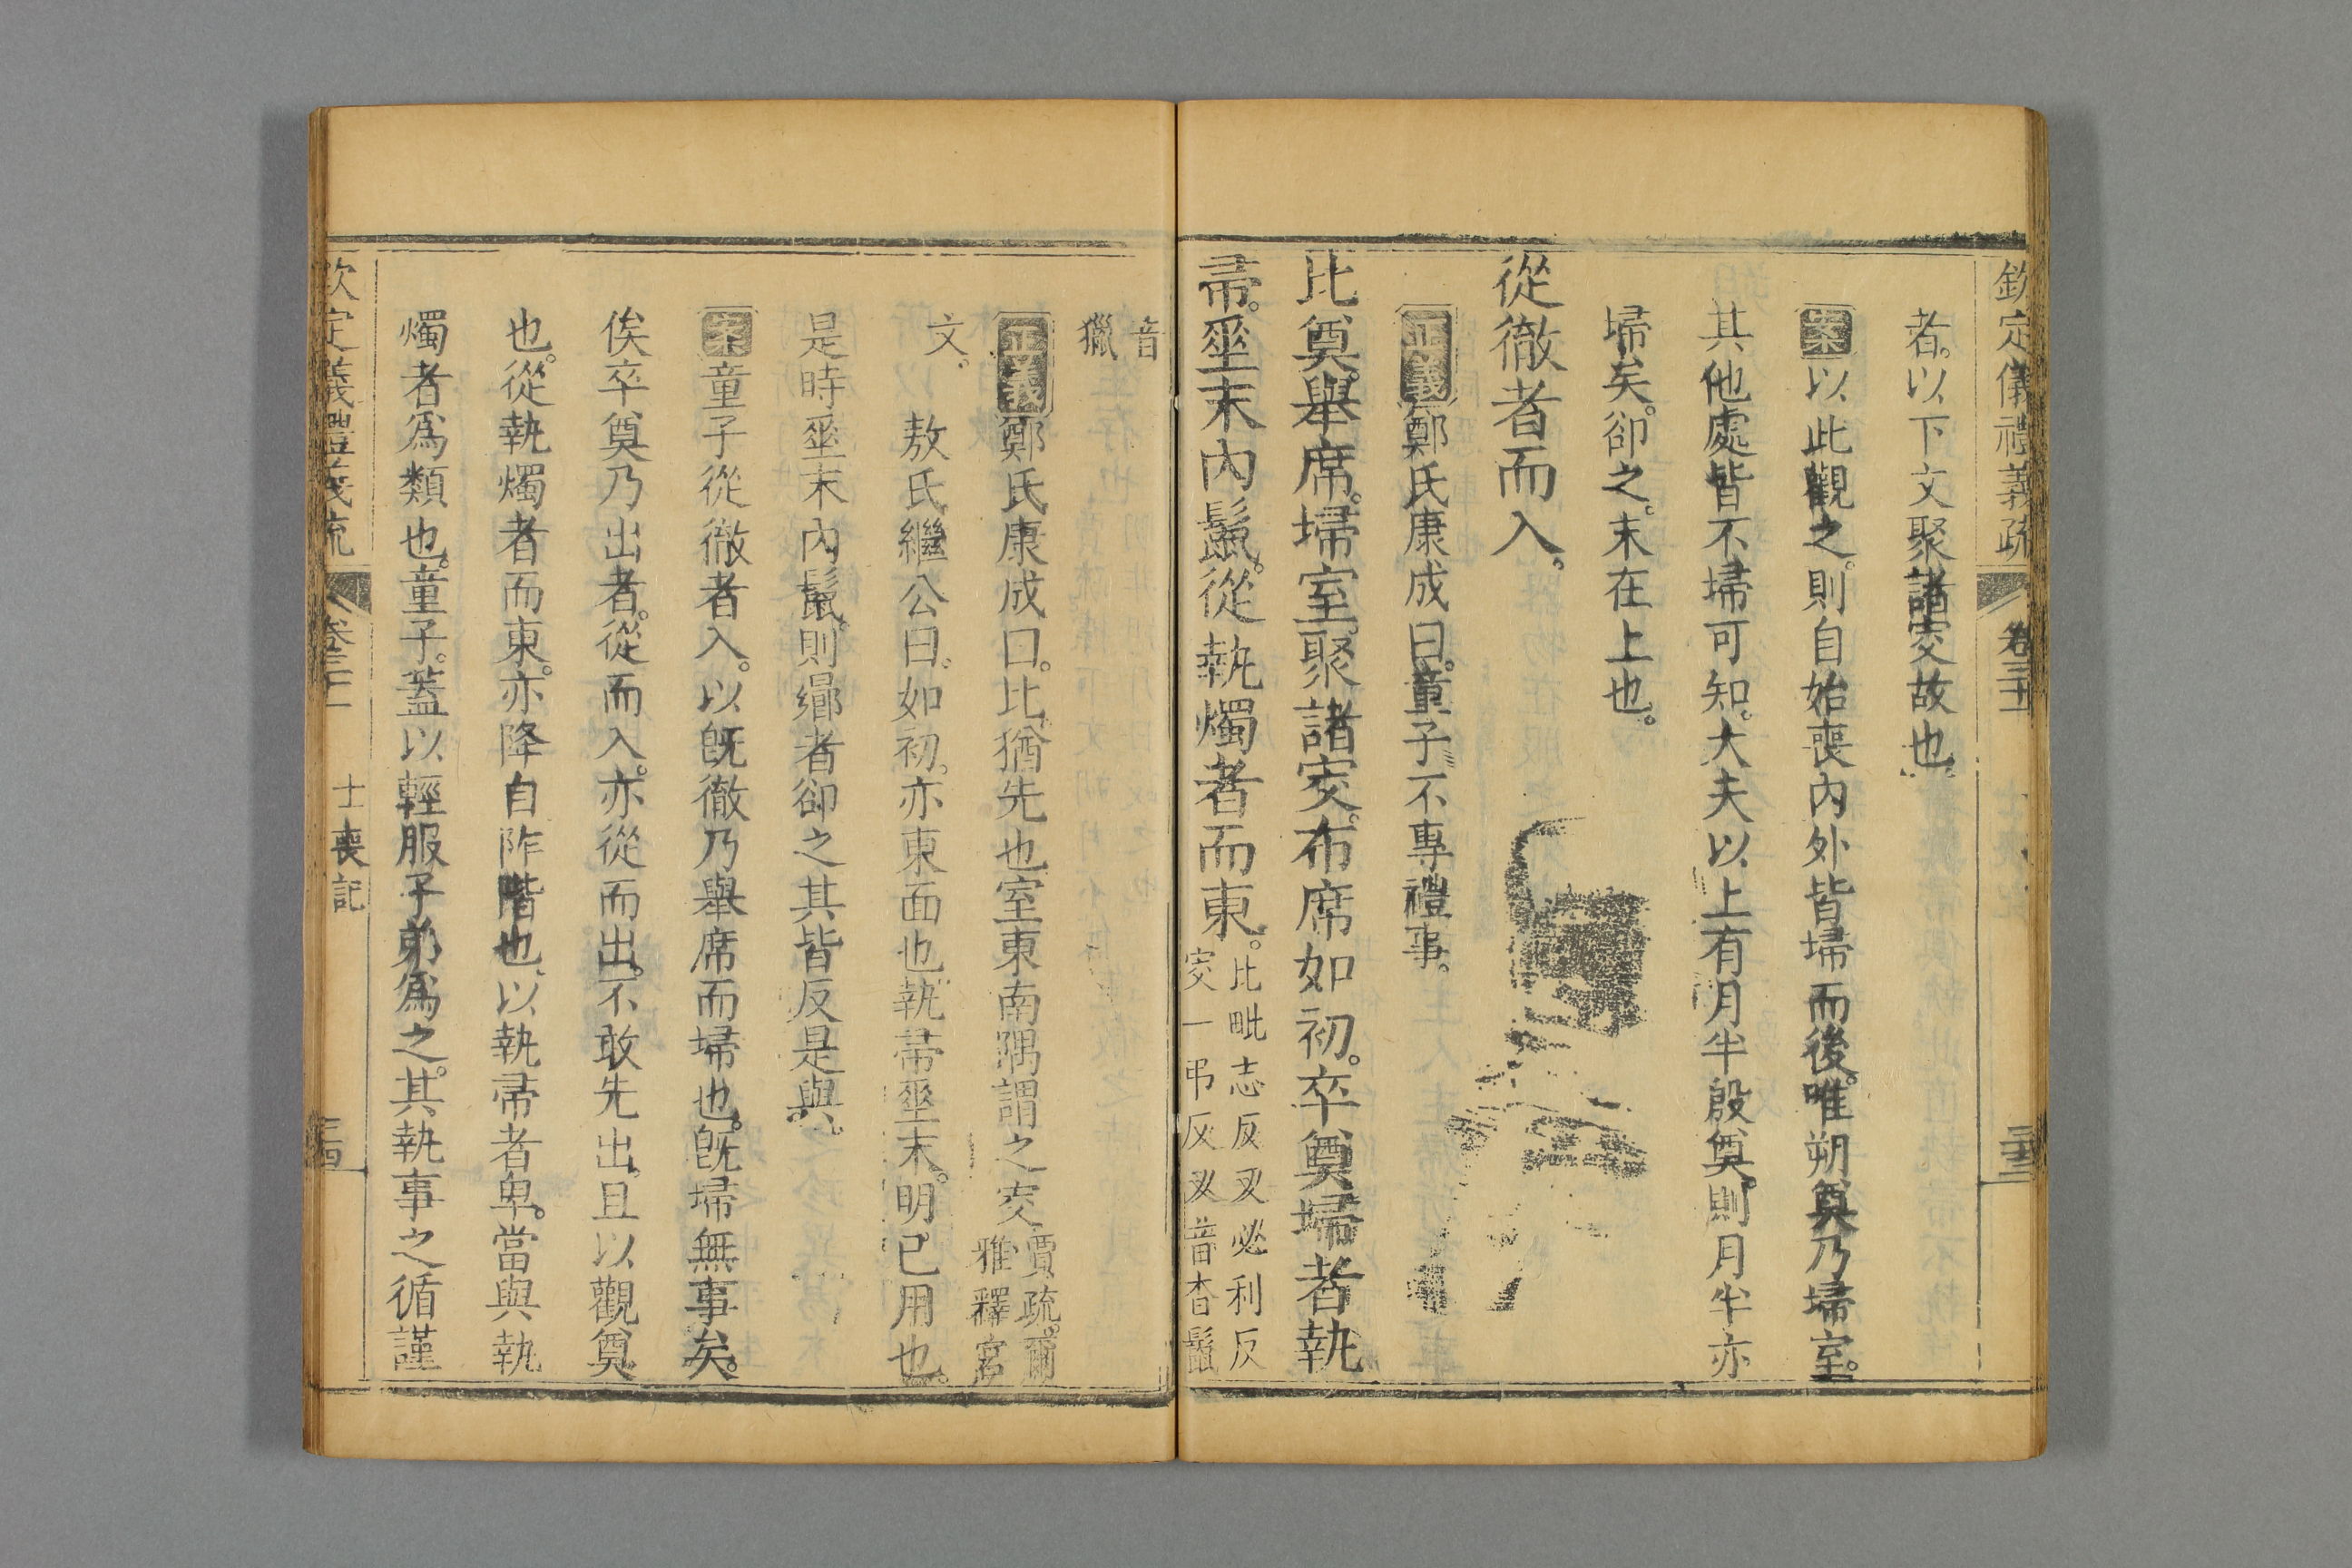 欽定儀禮義疏 卷三十
者。以下文聚諸窔故也
案以此觀之。則自始喪內外皆埽而後。唯朔奠乃埽室。
其他處皆不埽可知。大夫以上有月半殷奠。則月半亦
埽矣。卻之。末在上也。
從徹者而入。
正義鄭氏康成曰。童子不專禮事。
比奠。舉席。埽室。聚諸窔。布席如初。卒奠埽者執
帚。垂末內鬛。從執燭者而東。比毗志反又必利反
窔一弔反又音杳鬛
音
獵
正義鄭氏康成曰。比猶先也室東南隅謂之窔賈疏。爾
雅釋宮
文。
敖氏繼公曰。如初。亦東面也執帚垂末。明已用也。
是時垂末內鬛。則曏者卻之其皆反是與
案童子從徹者入。以旣徹乃舉席而埽也。旣埽無事矣。
俟卒奠乃出者。從而入。亦從而出。不敢先出。且以觀奠
也。從執燭者而東。亦降自阼階也。以執帚者卑。當與執
燭者爲類也。童子。蓋以輕服子弟爲之。其執事之循謹
欽定儀禮義疏 卷三十 士喪記